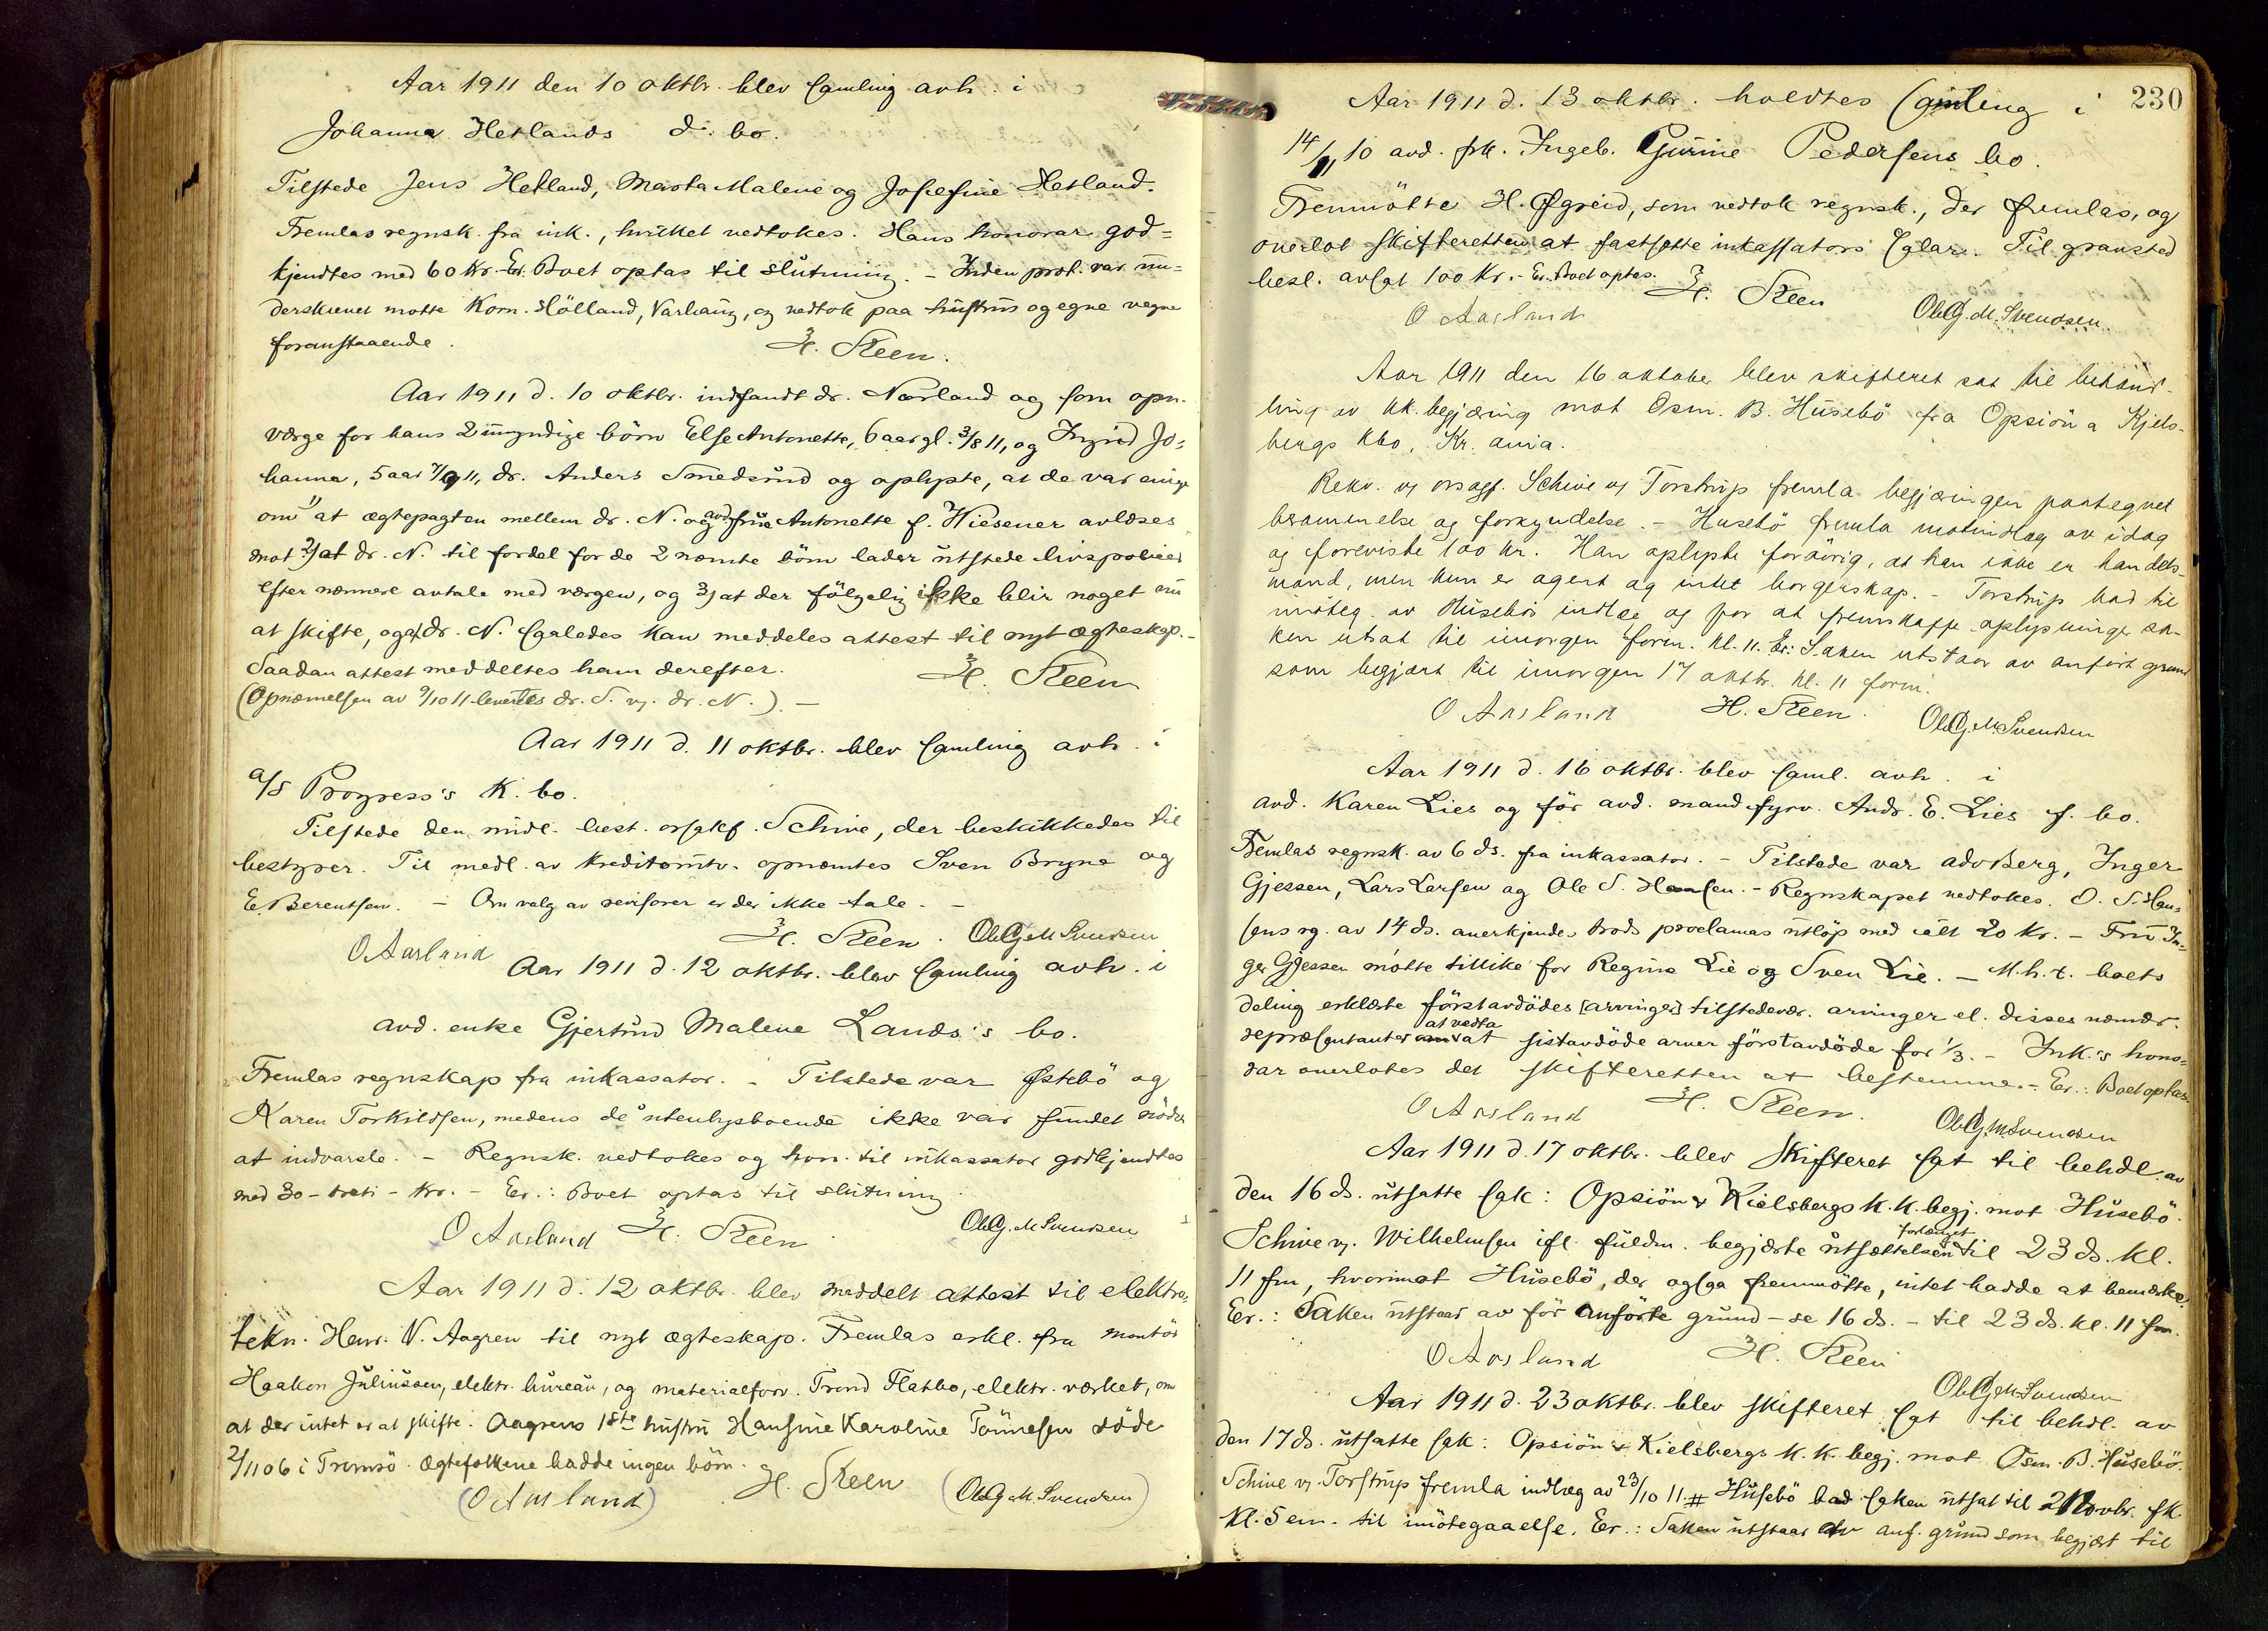 Aar 1911 den 10 oktbr. blev samling avh. i
Johanna Hetlands d. bo.
Tilstede Jens Hetland, Marta Malene og Josefine Hetland.
Fremlas regnsk. fra ink., hvilket vedtokes. Hans honorar god=
kjendtes med 60 Kr. Er. Boet optas til slutning. - Inden prot. var un=
derskrevet møtte Korn. Hölland, Varhaug, og vedtok paa hustrus og egne vegne
foranstaaende.
H. Steen.
Aar 1911 d. 10 oktbr. indfandt dr. Norland og som opn.
værge for hans 2 umyndige börn Else Antonette, 6 aar gl. 3/8 11, og Ingrid Jo=
hanna, 5 aar 7/9 11, dr. Anders Smedsund og oplyste, at de var enige
om 1) at ægtepagten mellem dr. N. og avd. frue Antonette f. Wiesener avlæses
mot 2) at dr. N. til fordel for de 2 nævnte börn lader utstede livspolicer
efter nærmere avtale med værgen, og 3) at der fölgelig ikke blir noget nu
at skifte, og at dr. N. saaledes kan meddeles attest til nyt ægteskap. -
Saadan attest meddeltes ham derefter.
H. Steen
(Opnævnelsen av 9/10 11 levertes dr. S. v. dr. N.). -
Aar 1911 d. 11 oktbr. blev samling avh. i
a/s Progress's K. bo.
Tilstede den midl. best. orsakf. Schive, der beskikkedes til
bestyrer. Til medl. av kreditorutv. opnævntes Sven Bryne og
E. Berentsen. - Om valg av revisorer er der ikke tale. -
O Aarsland H. Steen. Ole G. M Svendsen
Aar 1911 d. 12 oktbr. blev samling avh. i
avd. enke Gjertrud Malene Lands's bo.
Fremlas regnskap fra inkassator. - Tilstede var Østebö og
Karen Torkildsen, medens de utenbysboende ikke var fundet nödv.
at indvarsle. - Regnsk. vedtokes og hon. til inkassator godkjendtes
med 30 - treti - kr. - Er.: Boet optas til slutning.
O Aarsland H. Steen Ole G. M Svendsen
Aar 1911 d. 12 oktbr. blev meddelt attest til elektro=
tekn. Henr. N. Aagren til nyt ægteskap. Fremlas erkl. fra montör
Haakon Juliussen, elektr. bureau, og materialforv. Trond Flatbo, elektr. værket, om
at der intet er at skifte. Aagrens 1ste hustru Hansine Karoline Tönnesen döde
2/11 06 i Tromsö. Ægtefolkene hadde ingen börn.
(O Aarsland) H. Steen (Ole G. M. Svendsen)
230
Aar 1911 d. 13 oktbr. holdtes samling i
14/11 10 avd. frk. Ingeb. Gurine Pedersens bo.
Fremmötte H. Øgreid, som vedtok regnsk., der fremlas, og
overlot skifteretten at fastsette inkassators salær. Til gravsted
besl. avsat 100 Kr. - Er. Boet optas.
H. Steen
O Aarsland Ole G. M. Svendsen
Aar 1911 den 16 oktober blev skifteret sat til behand-
ling av kk. begjæring mot Osm. B. Husebö fra Opsiön & Kjels-
bergs kbo, Kr.ania.
Rekv. v. orsagf. Schive v. Torstrup fremla begjæringen paategnet
berammelse og forkyndelse. - Husebö fremla motindlæg av idag
og foreviste 100 kr. Han oplyste forövrig, at han ikke er handels-
mand, men kun er agent og intet borgerskap. - Torstrup bad til
imöteg. av Husebös indlæg og for at fremskaffe oplysninger sa-
ken utsat til imorgen form. kl. 11. Er: Saken utstaar av anfört grund
som begjært til imorgen 17 oktbr. kl. 11 form.
O Aarsland H. Steen. Ole G. M. Svendsen
Aar 1911 d. 16 oktbr. blev saml. avh. i
avd. Karen Lies og för avd. mand fyrv. Andr. E. Lies f. bo.
Fremlas regnsk. av 6 ds. fra inkassator. - Tilstede var adv Berg, Inger
Gjessen, Lars Larsen og Ole S. Hansen. - Regnskapet vedtokes. O. S. Han=
sens rg. av 14 ds. anerkjendes trods proclamas utlöp med ialt 20 Kr. - Fru In=
ger Gjessen mötte tillike for Regine Lie og Sven Lie. - M.h.t. boets
deling erklærte förstavdödes [arvinger] tilstedevær. arvinger el. disses nævnær.
repræsentanter at vedta at sistavdöde arver förstavdöde for 1/3. - Ink.'s hono=
rar overlotes det skifteretten at bestemme. - Er.: Boet optas.
O Aarsland H. Steen. Ole G. M Svendsen
Aar 1911 d. 17 oktbr. blev skifteret sat til behdl. av
den 16 ds. utsatte sak: Opsiön & Kielsbergs K.K. begj. mot Husebö.
Schive v. Wilhelmsen ifl. fuldm. begjærte utsættelsen forlænget til 23 ds. kl.
11 fm, hvorimot Husebö, der ogsaa fremmötte, intet hadde at bemærke.
Er.: Saken utstaar av för anförte grund - se 16 ds. - til 23 ds. kl. 11 fm.
O Aarsland H. Steen
Ole G. M Svendsen
Aar 1911 d. 23 oktbr. blev skifteret sat til behdl. av
den 17 ds. utsatte sak: Opsiön & Kielsbergs K.K. begj. mot Osm. B. Husebö.
Schive v. Torstrup fremla indlæg av 23/10 11 # Husebö bad saken utsat til 2 Novbr. fk.
Kl. 5 em. til imötegaaelse. Er.: Saken utstaar av anf. grund som begjært til